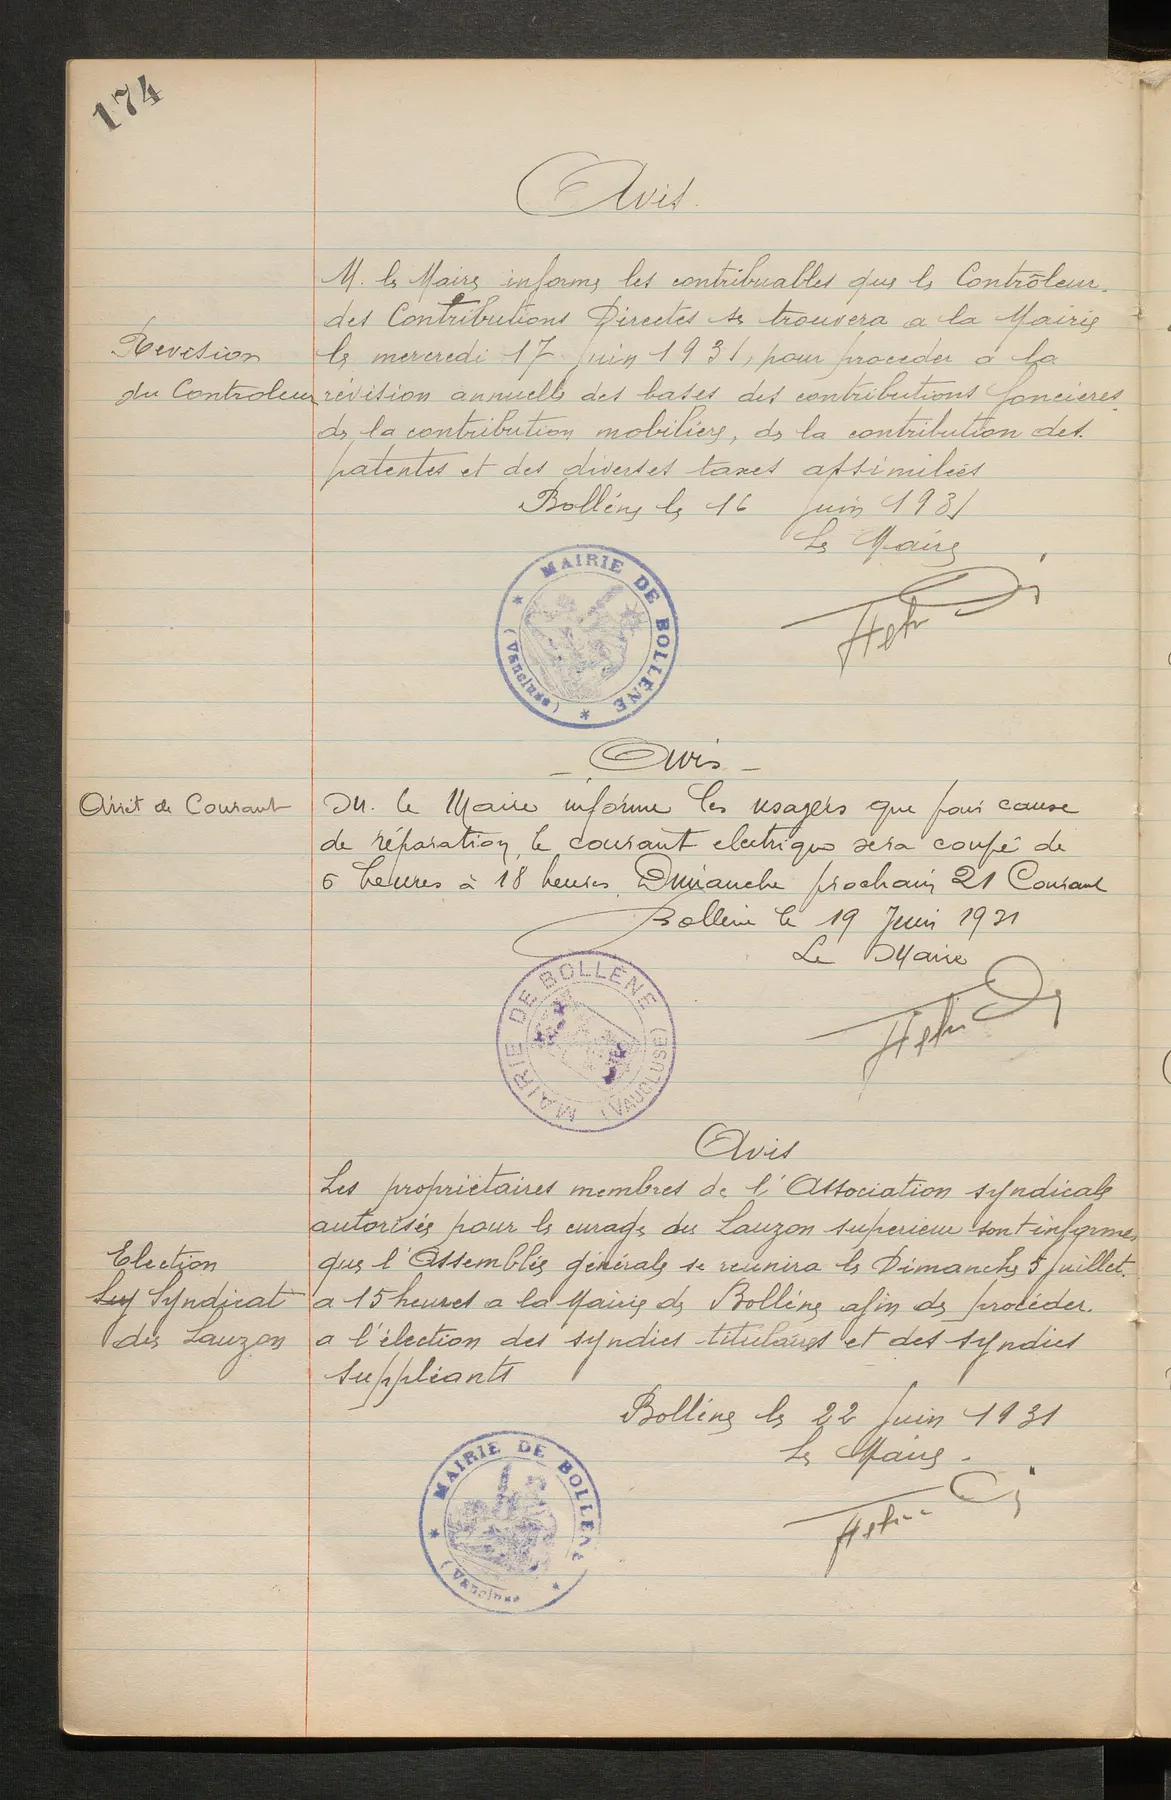 174
Avis.
M. le Maire informe les contribuables que le Contrôleur.
des Contributions Directes se trouvera a la Mairie
Revision
le mercredi 17 Juin 1931, pour proceder a la
du Controleur
révision annuelle des bases des contributions foncieres
de la contribution mobiliere, de la contribution des.
patentes et des diverses taxes assimilees
Bollène le 16 Juin 1931
Le Maire
MAIRIE DE BOLLÈNE
(Vaucluse)
Avis
Arrêt de Courant
M. le Maire informe les usagers que pour cause
de réparation, le courant electrique sera coupé de
6 heures à 18 heures Dimanche prochain 21 Courant
Bollène le 19 Juin 1931
Le Maire
MAIRIE DE BOLLÈNE
(VAUCLUSE)
Avis
Les propriétaires membres de l'Association syndicale
autorisée pour le curage du Lauzon superieur sont informes
Election
que l'Assemblée générale se reunira le Dimanche 5 juillet.
Syndicat
a 15 heures a la Mairie de Bollène afin de procéder.
du Lauzon
a l'élection des syndics titulaires et des syndics
suppléants
Bollène le 22 Juin 1931
Le Maire.
MAIRIE DE BOLLENE
(Vaucluse